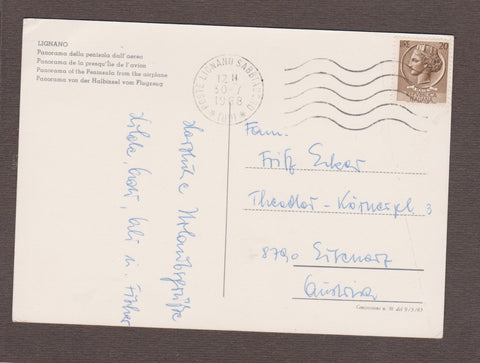 LIGNANO
Panorama della penisola dall'aereo
Panorama de la presqu'île de l'avion
Panorama of the Peninsula from the airplane
Panorama von der Halbinsel vom Flugzeug
POSTE LIGNANO SABBIADORO
12 H
30-7
1968
(UD)
20
Herzliche Urlaubsgrüße
Fam.
Fritz
Theodor-Körnerpl 3
8790 Eisenerz
Austria
Concessione n. 91 del 9/3/65